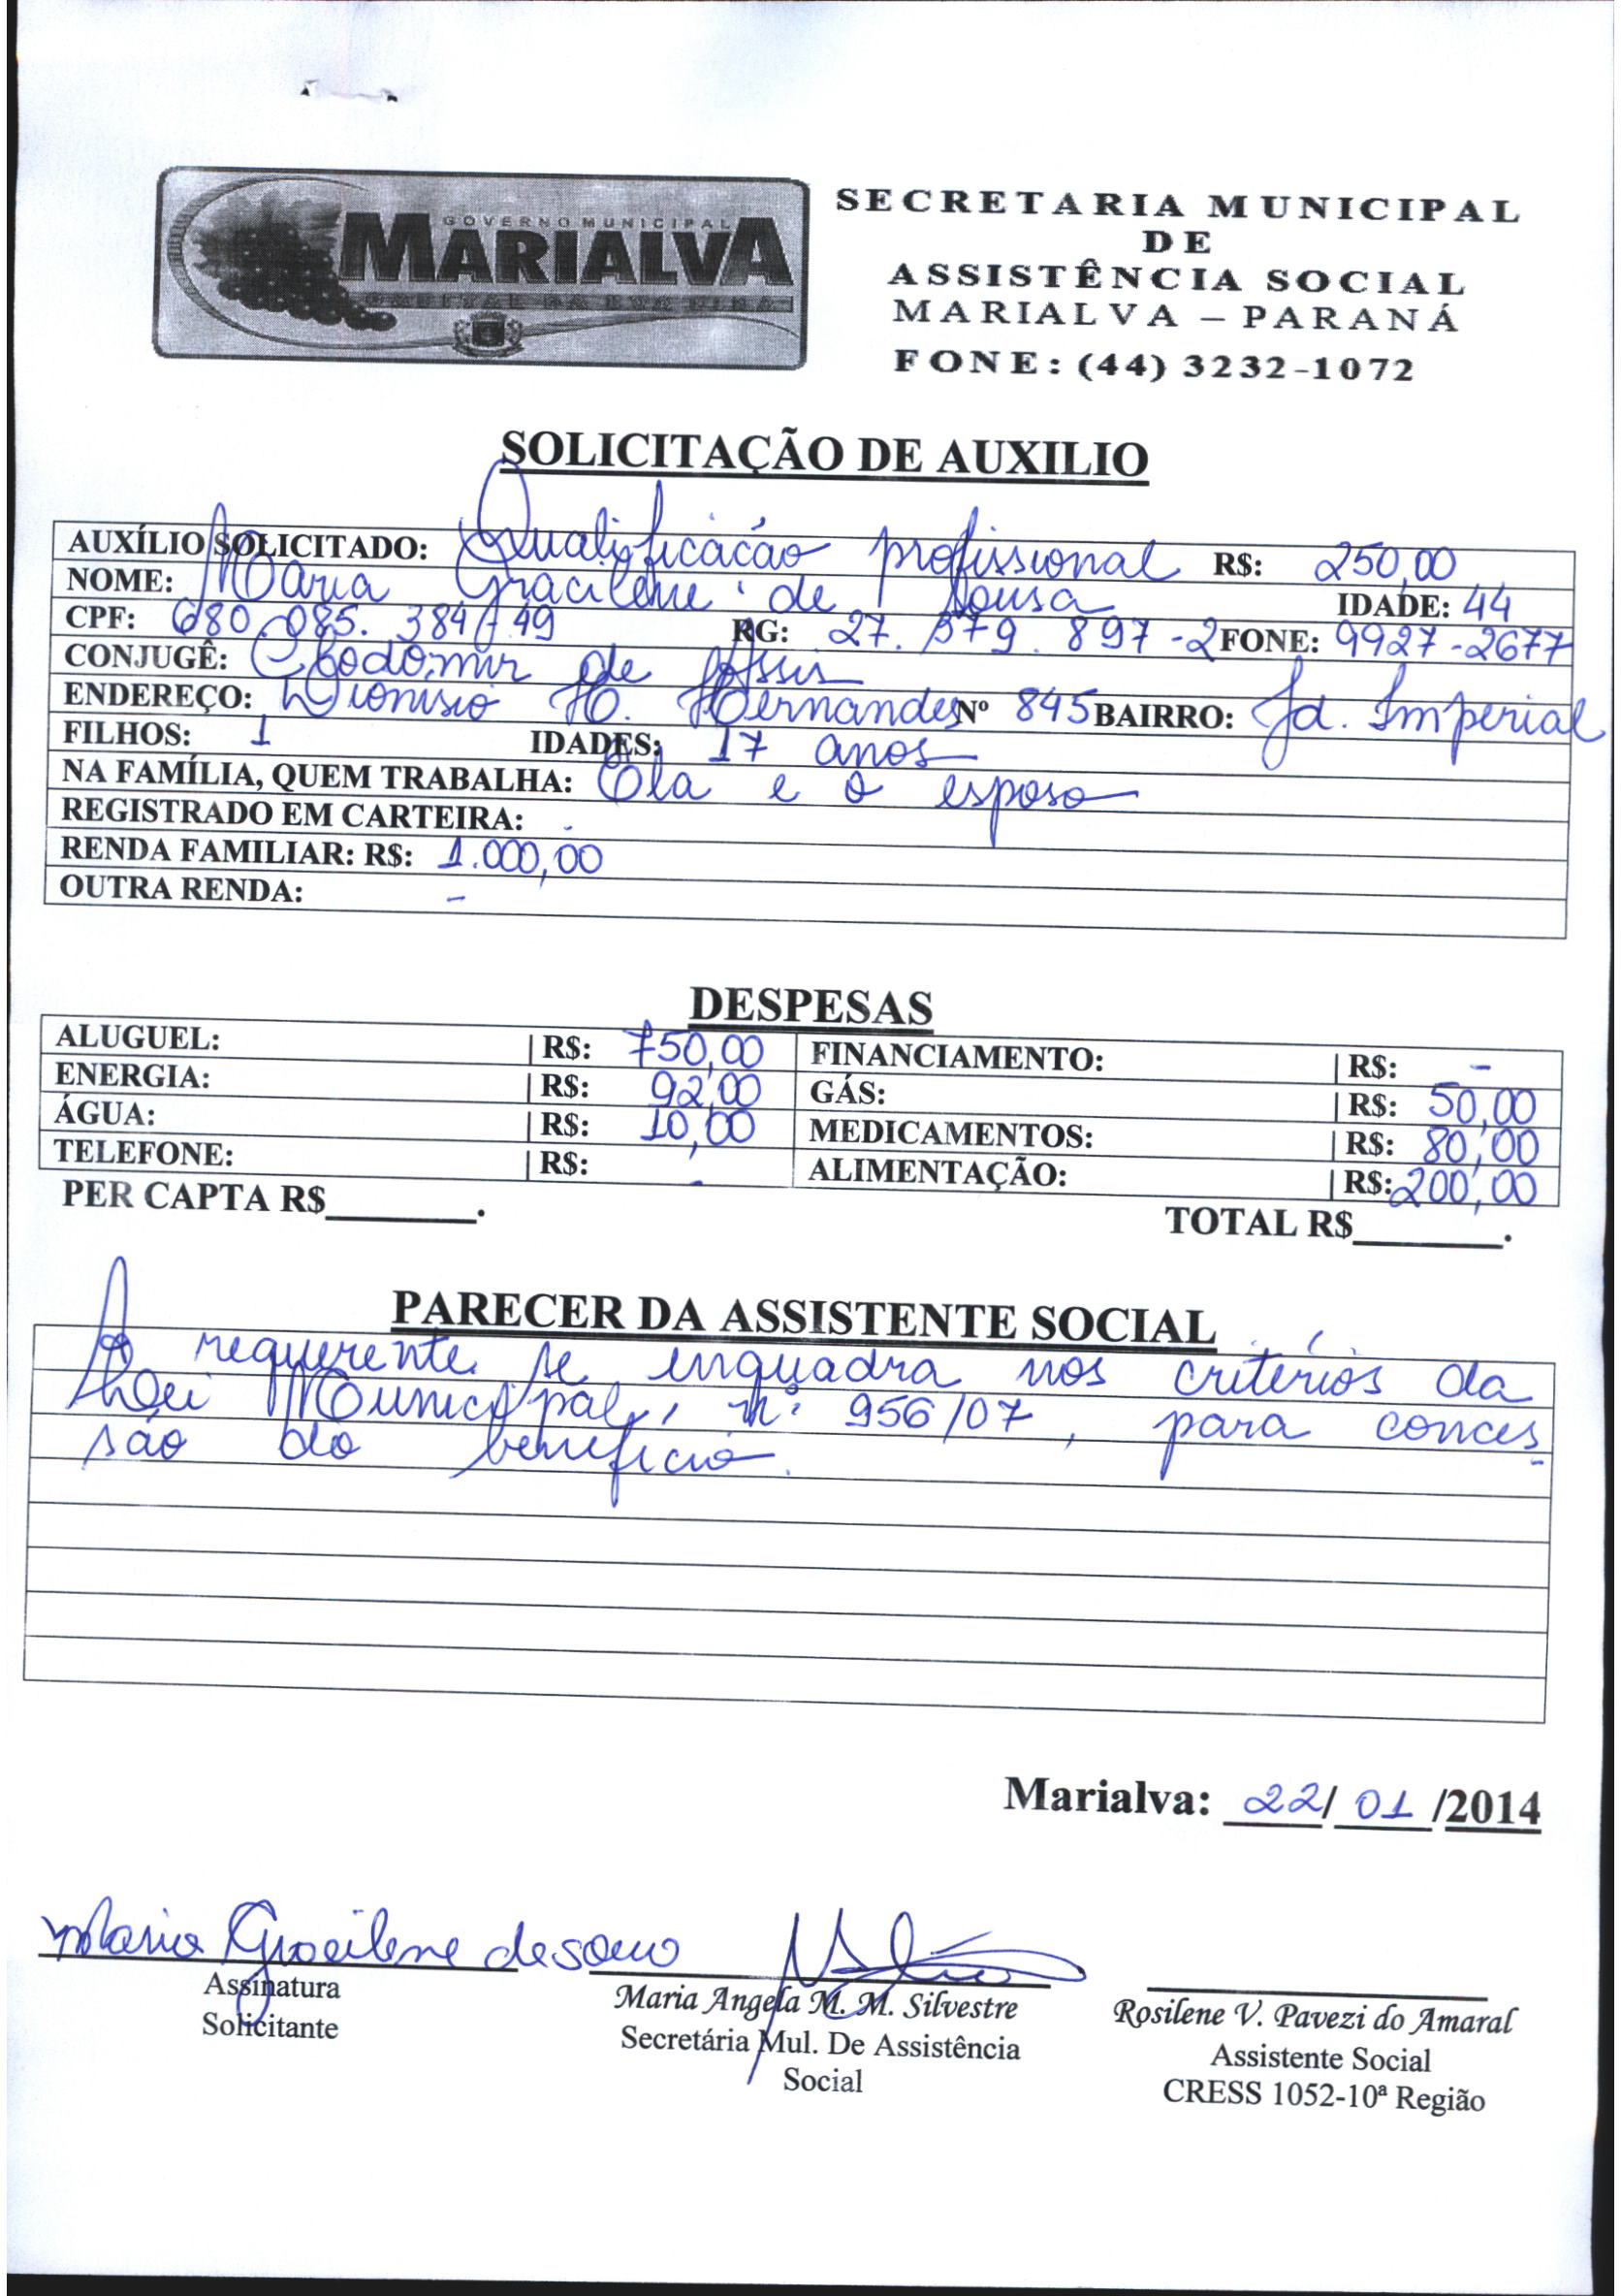 GOVERNO MUNICIPAL
MARIALVA
CAPITAL DA UVA FINA
SECRETARIA MUNICIPAL
DE
ASSISTÊNCIA SOCIAL
MARIALVA – PARANÁ
FONE: (44) 3232-1072
SOLICITAÇÃO DE AUXILIO
AUXÍLIO SOLICITADO: Qualificação profissional R$: 250,00
NOME: Maria Gracilene de Sousa IDADE: 44
CPF: 680.085.384-49 RG: 27.579.897-2 FONE: 9927-2677
CONJUGÊ: Clodomir de Assis
ENDEREÇO: Dionisio H. Hernandes Nº 845 BAIRRO: Jd. Imperial
FILHOS: 1 IDADES: 17 anos
NA FAMÍLIA, QUEM TRABALHA: Ela e o esposo
REGISTRADO EM CARTEIRA: -
RENDA FAMILIAR: R$: 1.000,00
OUTRA RENDA: -
DESPESAS
ALUGUEL: | R$: 750,00 FINANCIAMENTO: | R$: -
ENERGIA: | R$: 92,00 GÁS: | R$: 50,00
ÁGUA: | R$: 10,00 MEDICAMENTOS: | R$: 80,00
TELEFONE: | R$: - ALIMENTAÇÃO: | R$: 200,00
PER CAPTA R$_______. TOTAL R$_______.
PARECER DA ASSISTENTE SOCIAL
A requerente se enquadra nos critérios da
Lei Municipal, nº 956/07, para conces-
são do benefício.
Marialva: 22/ 01 /2014
Maria Gracilene de souo
Assinatura Maria Angela M. M. Silvestre Rosilene V. Pavezi do Amaral
Solicitante Secretária Mul. De Assistência Assistente Social
Social CRESS 1052-10ª Região